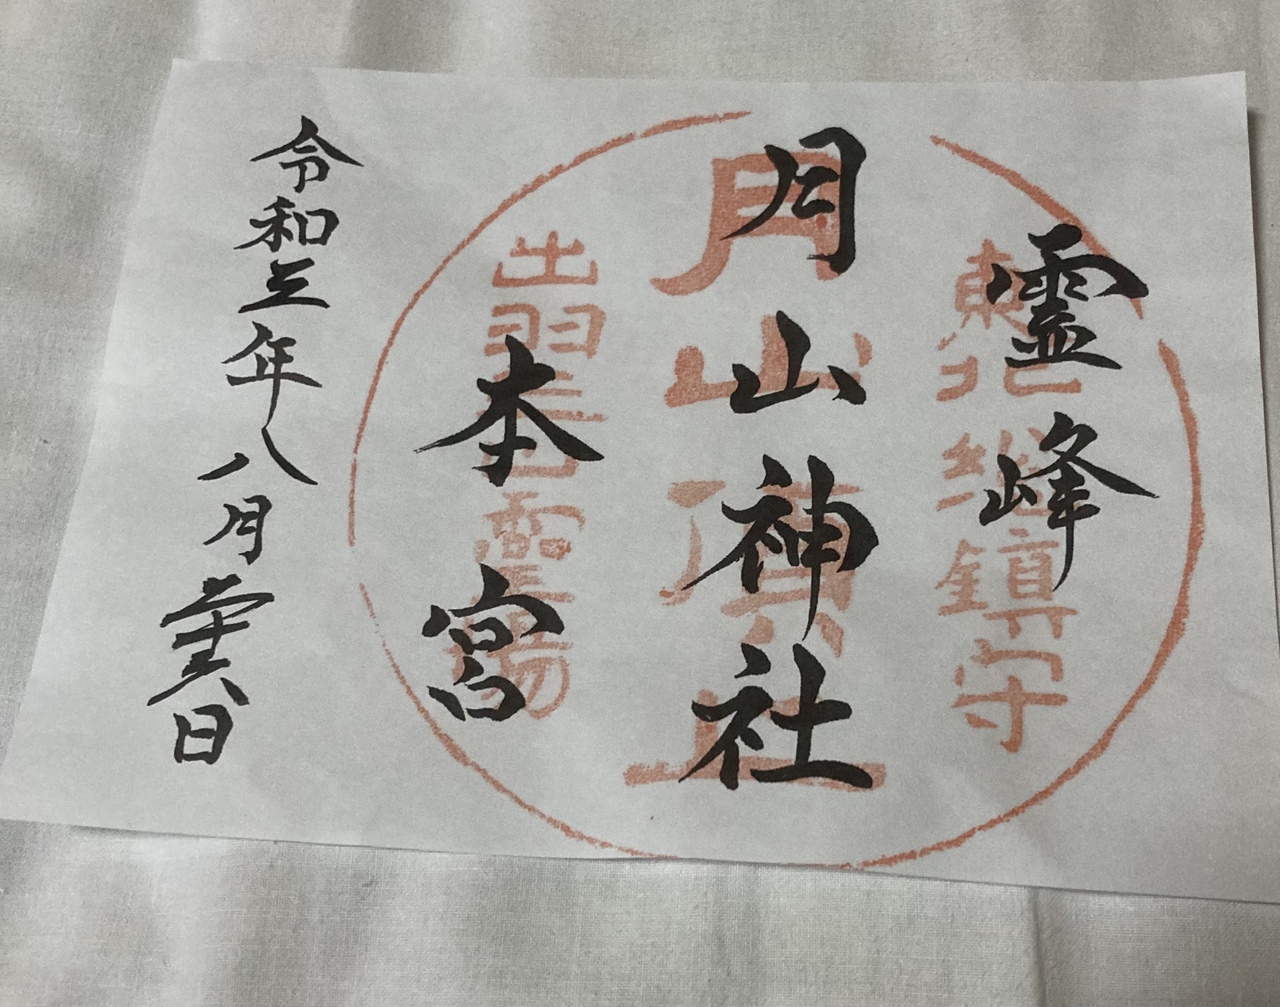 霊峰
月山神社
本宮
令和三年八月二十六日
東北総鎮守
月山頂上
出羽 靈場